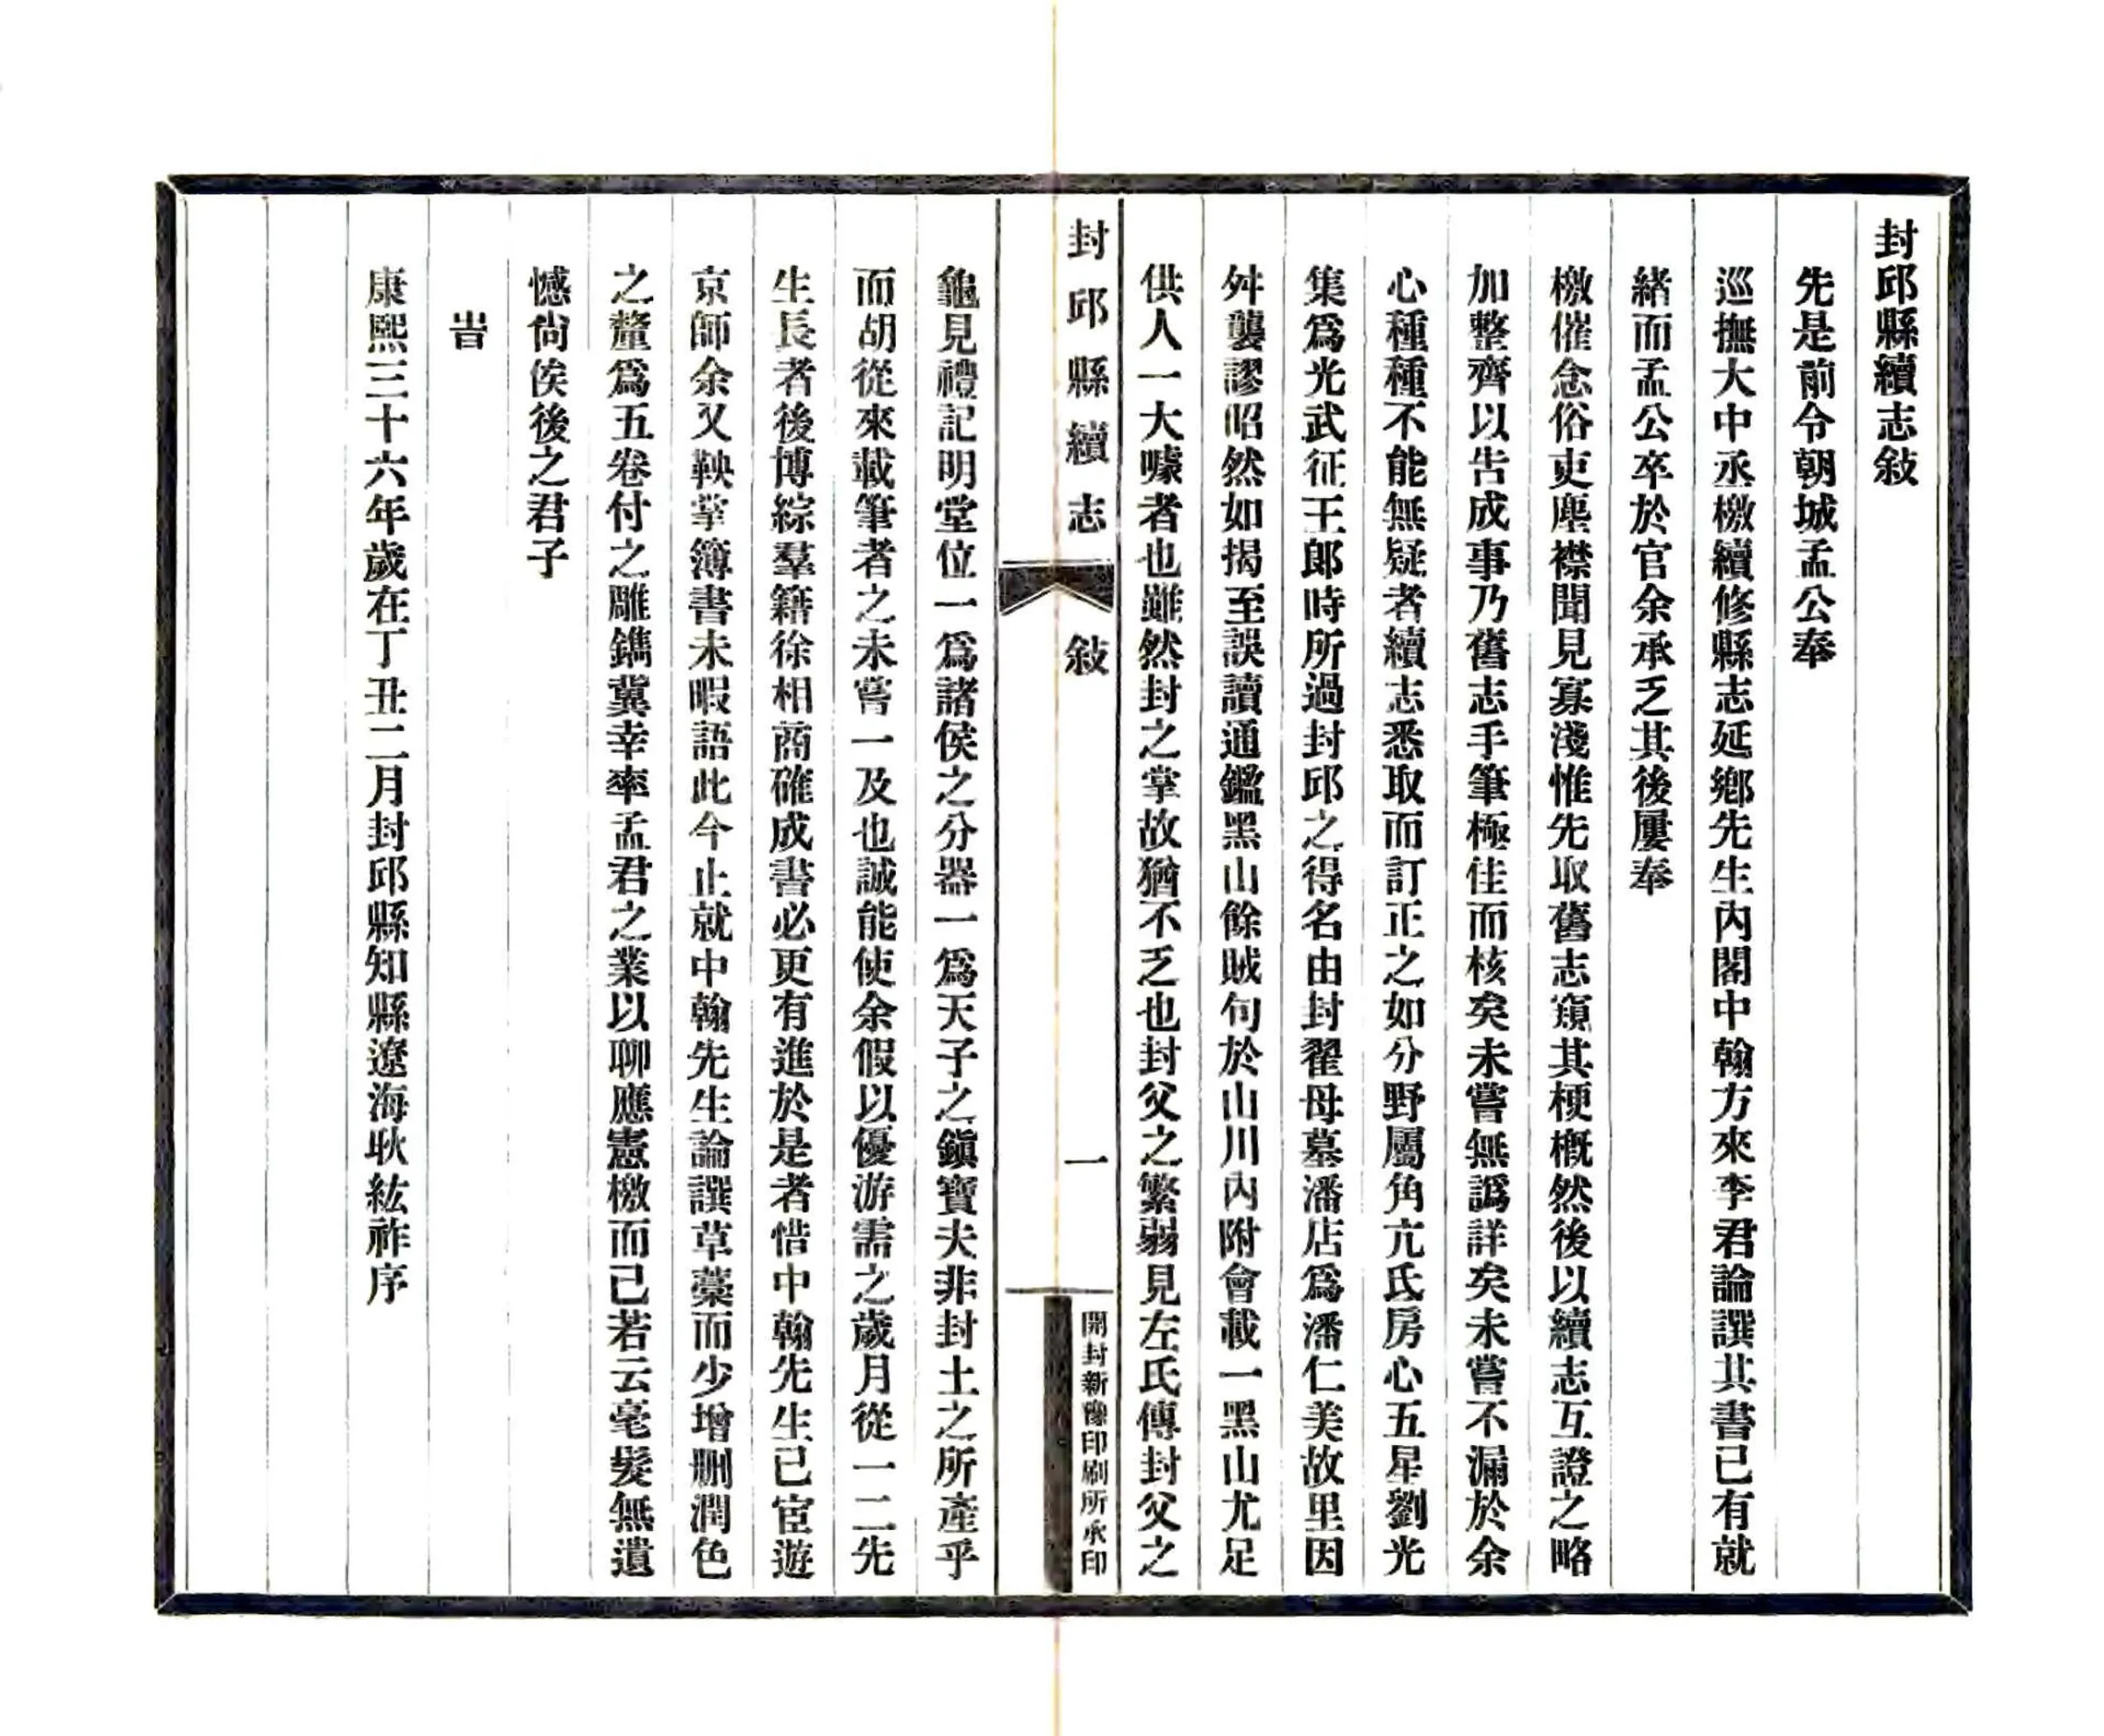 封邱縣續志敍
先是前令朝城孟公奉
巡撫大中丞檄續修縣志延鄉先生內閣中翰方來李君論譔其書已有就
緒而孟公卒於官余承乏其後屢奉
檄催念俗吏塵襟聞見寡淺惟先取舊志窺其梗概然後以續志互證之略
加整齊以告成事乃舊志手筆極佳而核矣未嘗無譌詳矣未嘗不漏於余
心種種不能無疑者續志悉取而訂正之如分野屬角亢氐房心五星劉光
集爲光武征王郎時所過封邱之得名由封翟母墓潘店爲潘仁美故里因
舛襲謬昭然如揭至誤讀通鑑黑山餘賊句於山川內附會載一黑山尤足
供人一大噱者也雖然封之掌故猶不乏也封父之繁弱見左氏傳封父之
封邱縣續志
敍
一
開封新豫印刷所承印
龜見禮記明堂位一爲諸侯之分器一爲天子之鎭寶夫非封土之所產乎
而胡從來載筆者之未嘗一及也誠能使余假以優游需之歲月從一二先
生長者後博綜羣籍徐相商確成書必更有進於是者惜中翰先生已宦遊
京師余又鞅掌簿書未暇語此今止就中翰先生論譔草藁而少增刪潤色
之釐爲五卷付之雕鐫冀幸率孟君之業以聊應憲檄而已若云毫髮無遺
憾尙俟後之君子
旹
康熙三十六年歲在丁丑二月封邱縣知縣遼海耿紘祚序